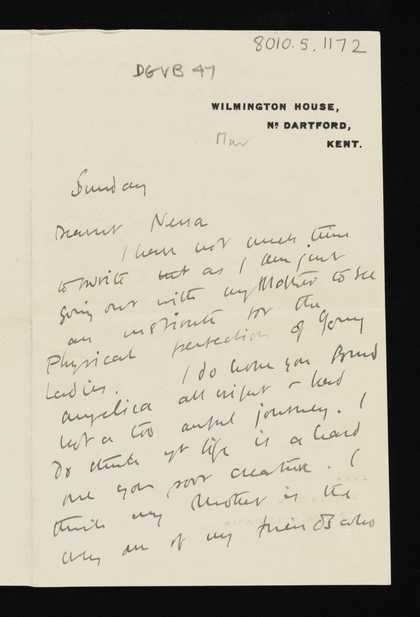 8010.5.1172
DGVB 47
WILMINGTON HOUSE,
Nr DARTFORD,
KENT.
Mar
Sunday
Dearest Nessa
I have not much time
to write but as I am just
going out with my Mother to see
an institute for the
Physical perfection of Young
Ladies. I do hope you found
Angelica all right & had
not a too awful journey. I
do think yr life is a hard
one you poor creature. I
think my Mother is the
only one of my friends who